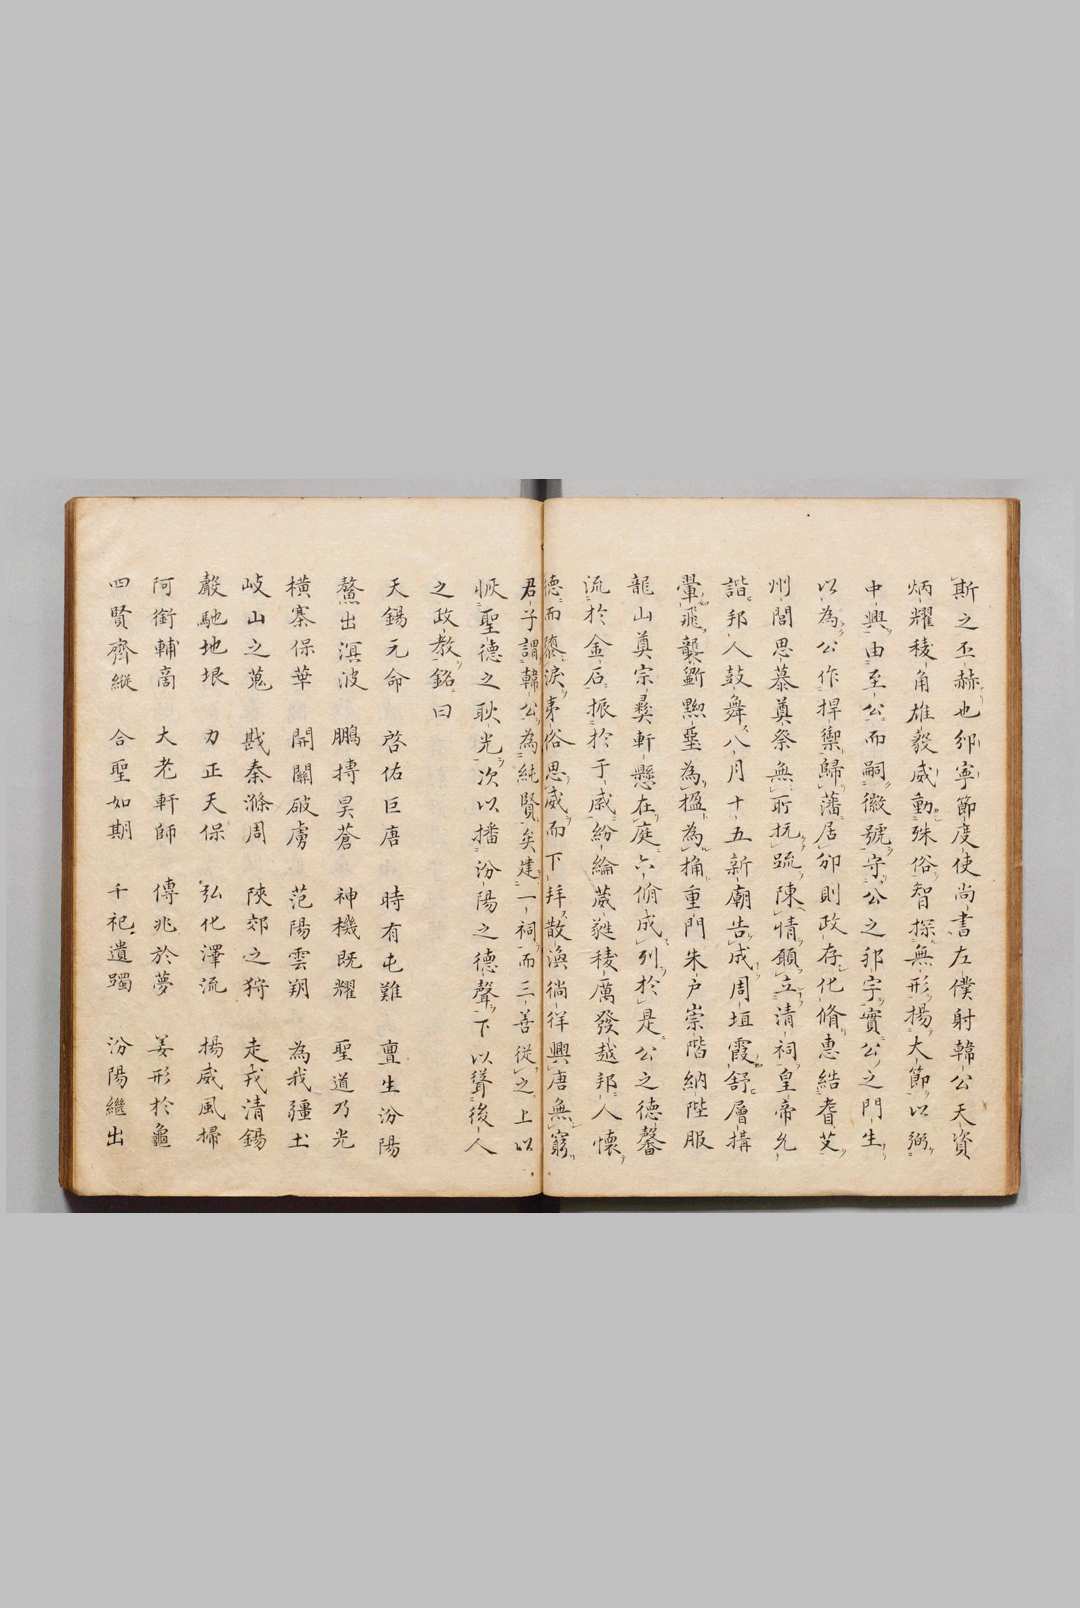 斯之丕赫也邠寧節度使尚書左僕射韓公天資
炳耀稜角雄毅威動殊俗智探無形揚大節以弼
中興由至公而嗣徽號守公之邦宇實公之門生
以為公作捍禦歸藩居邠則政存化脩惠結耆艾
州閭思慕奠祭無所抗䟽陳情願立清祠皇帝允
諧邦人鼓舞八月十五新廟告成周垣霞舒層構
翬飛龑斵黝堊為楹為桷重門朱戶崇階納陛服
龍山奠宗彝軒懸在庭六佾成列於是公之德馨
流於金石振於于戚紛綸葳蕤稜厲發越邦人懷
德而隳淚夷俗思威而下拜散渙徜徉興唐無窮
君子謂韓公為純賢矣建一祠而三善從之上以
恢聖德之耿光次以播汾陽之德聲下以聳後人
之政教銘曰
天錫元命 啓佑巨唐 時有屯難 亶生汾陽
鰲出溟波 鵬摶昊蒼 神機既耀 聖道乃光
橫寨保華 開關破虜 范陽雲朔 為我疆土
岐山之蒐 戡秦滌周 陝郊之狩 走戎清鍚
嚴馳地垠 力正天保 弘化澤流 揚威風掃
阿衡輔啇 大老軒師 傳兆於夢 姜形於龜
四賢齊縱 合聖如期 千祀遺躅 汾陽繼出